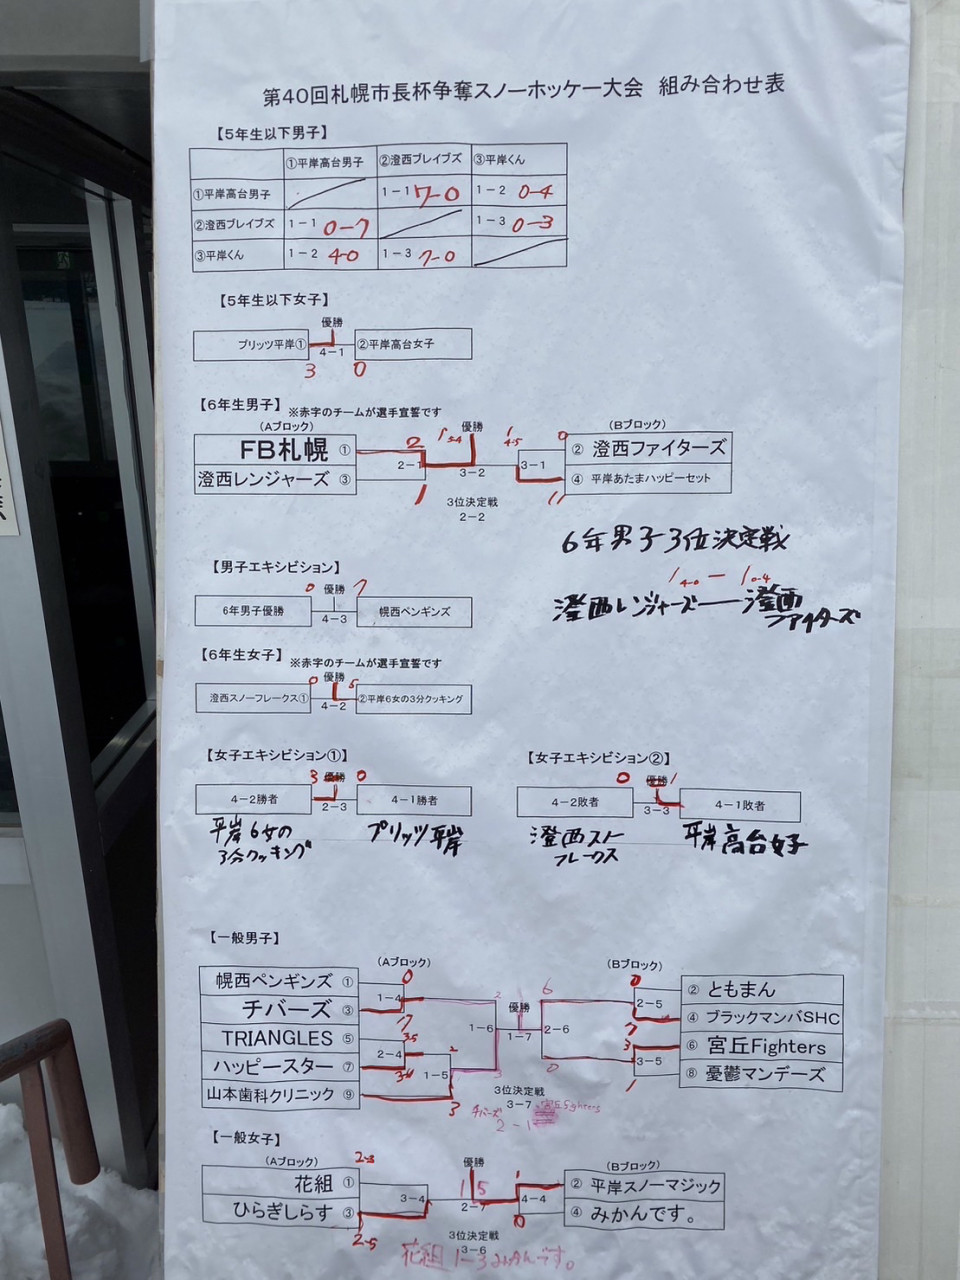 第40回札幌市長杯争奪スノーホッケー大会 組み合わせ表
【5年生以下男子】
①平岸高台男子 ②澄西ブレイブズ ③平岸くん
①平岸高台男子 1-1 7-0 1-2 0-4
②澄西ブレイブズ 1-1 0-7 1-3 0-3
③平岸くん 1-2 4-0 1-3 7-0
【5年生以下女子】
優勝
ブリッツ平岸① 4-1 ②平岸高台女子
3 0
【6年生男子】 ※赤字のチームが選手宣誓です
(Aブロック) 優勝 (Bブロック)
FB札幌 ① 2 1 1 0 ② 澄西ファイターズ
2-1 3-2 3-1
澄西レンジャーズ ③ 1 1 ④ 平岸あたまハッピーセット
3位決定戦
2-2
6年男子3位決定戦
1 4-0 - 1 0-4
澄西レンジャーズ ― 澄西ファイターズ
【男子エキシビション】
0 優勝 7
6年男子優勝 4-3 幌西ペンギンズ
【6年生女子】 ※赤字のチームが選手宣誓です
0 優勝 5
澄西スノーフレークス① 4-2 ②平岸6女の3分クッキング
【女子エキシビション①】 【女子エキシビション②】
3 優勝 0 0 優勝 1
4-2勝者 2-3 4-1勝者 4-2敗者 3-3 4-1敗者
平岸6女の3分クッキング ブリッツ平岸 澄西スノーフレークス 平岸高台女子
【一般男子】
(Aブロック) (Bブロック)
幌西ペンギンズ ① 0 2 優勝 6 0 ② ともまん
1-4 2-5
チバーズ ③ 7 7 ④ ブラックマンバSHC
1-6 1-7 2-6
TRIANGLES ⑤ 3 ⑥ 宮丘Fighters
2-4 2 3-5
ハッピースター ⑦ 1-5 0 1 ⑧ 憂鬱マンデーズ
山本歯科クリニック ⑨ 3
3位決定戦
3-7
チバーズ 宮丘Fighters
2-1
【一般女子】
(Aブロック) 2-3 優勝 (Bブロック)
花組 ① 1 5 1 ② 平岸スノーマジック
3-4 2-7 4-4
ひらぎしらす ③ 0 ④ みかんです。
2-5
3位決定戦
3-6
花組 1-3 みかんです。